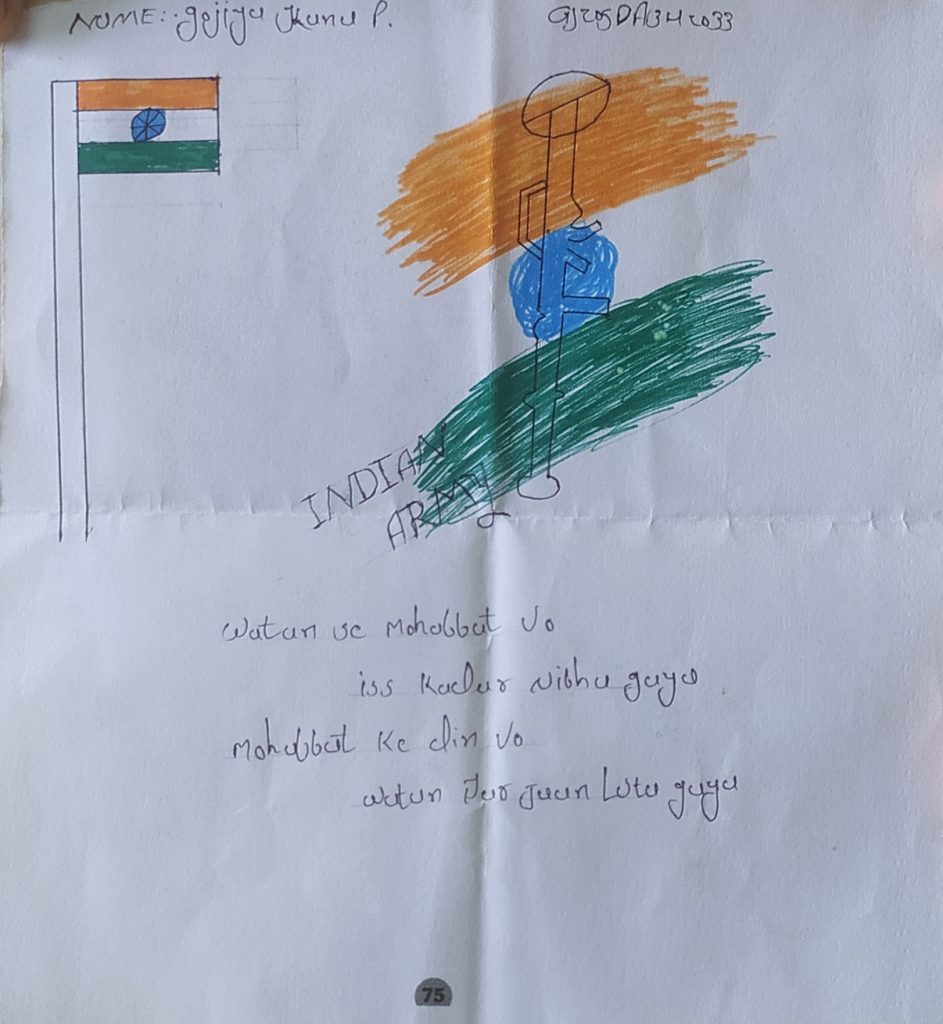 NAME:- Gejiya Kanu P.
INDIAN
ARMY
watan se Mohabbat Vo
iss Kadar Nibha gaya
Mohabbat Ke din Vo
watan Par Jaan Luta gaya
75